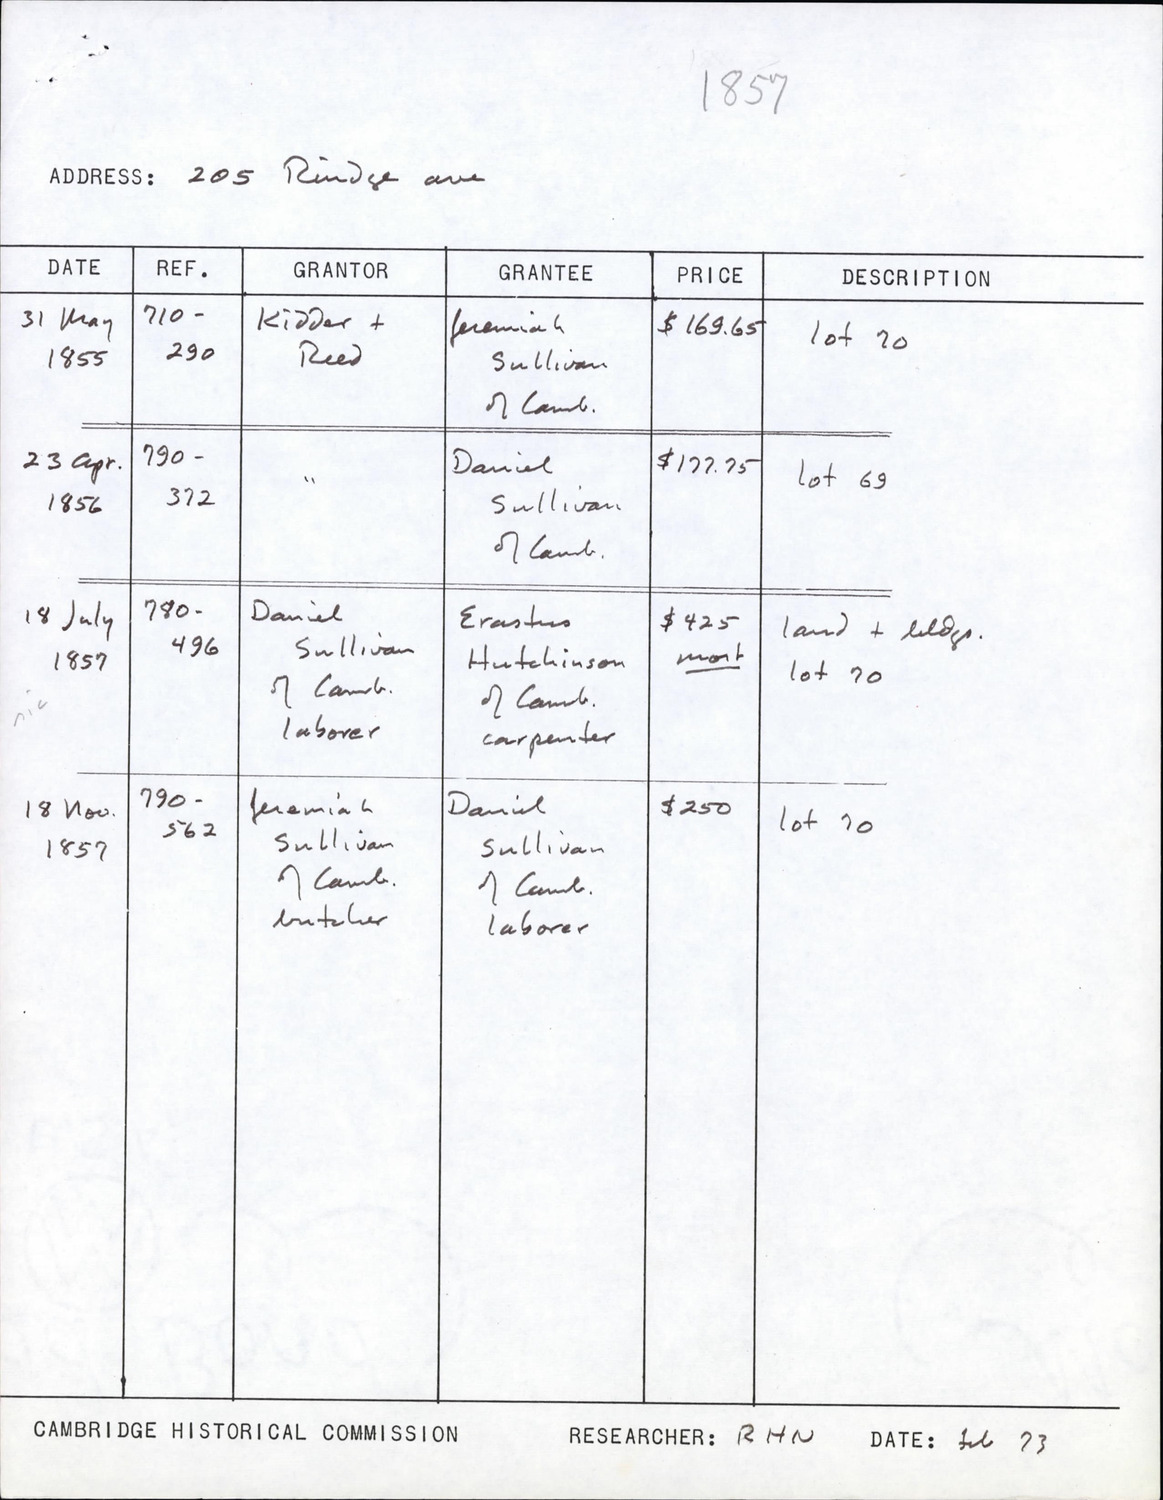 1857
ADDRESS: 205 Rindge ave
DATE REF. GRANTOR GRANTEE PRICE DESCRIPTION
31 May 710- Kidder + Jeremiah $169.65 lot 70
1855 290 Reed Sullivan
of Camb.
23 Apr. 790- " Daniel $177.75 lot 69
1856 372 Sullivan
of Camb.
18 July 780- Daniel Erastus $425 land + bldgs.
1857 496 Sullivan Hutchinson mort lot 70
sic of Camb. of Camb.
laborer carpenter
18 Nov. 790- Jeremiah Daniel $250 lot 70
1857 562 Sullivan Sullivan
of Camb. of Camb.
butcher laborer
CAMBRIDGE HISTORICAL COMMISSION RESEARCHER: RHN DATE: Feb 73